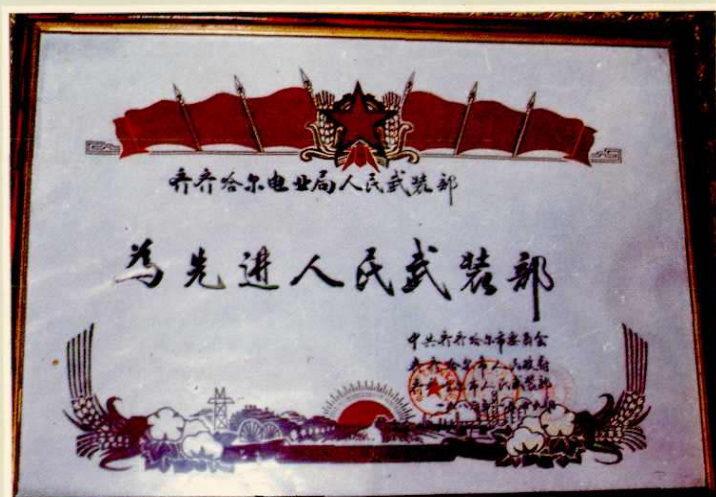 齐齐哈尔电业局人民武装部
为先进人民武装部
中共齐齐哈尔市委员会
齐齐哈尔市人民政府
齐齐哈尔市人民武装部
一九八